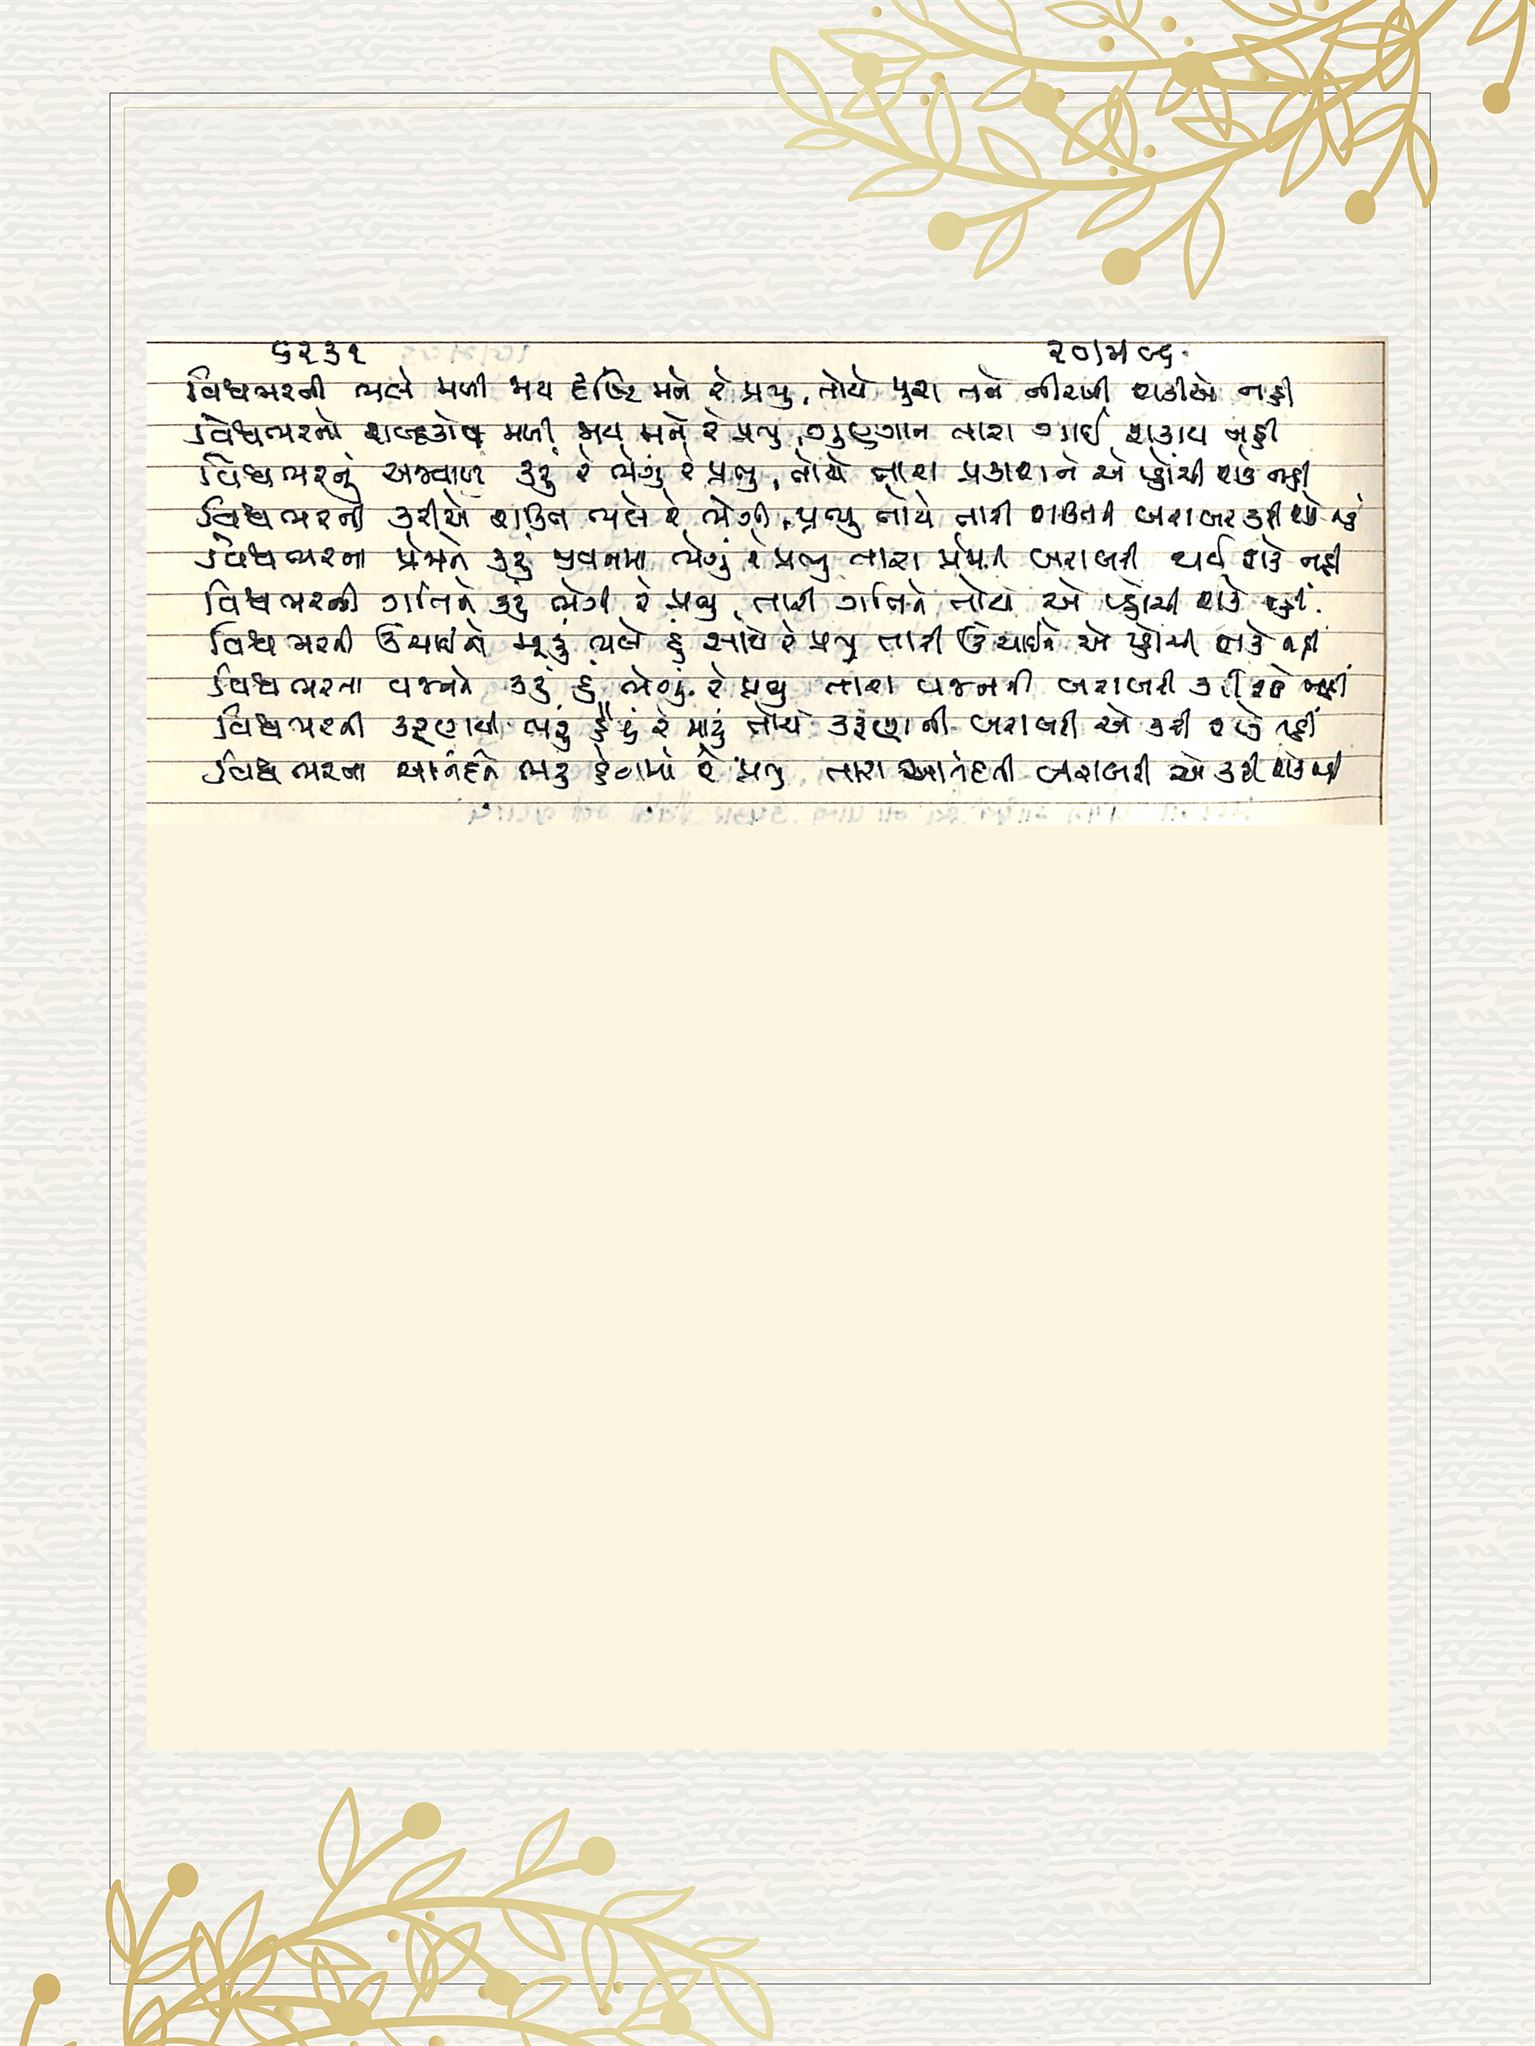 ૬૨૩૧ ૨૦/મ ૯૬
વિશ્વભરની ભલે મળી જાય દૃષ્ટિ મને રે પ્રભુ, તોયે પુરા તને નીરખી શકીએ નહી
વિશ્વભરનો શબ્દકોષ મળી જાય મને રે પ્રભુ, ગુણગાન તારા ગાઈ શકાય નહી
વિશ્વભરનું અજવાળુ કરૂં રે ભેગું રે પ્રભુ, તોયે તારા પ્રકાશને એ પ્હોંચી શકે નહી
વિશ્વભરની કરીએ ભલે રે ભેગી, પ્રભુ તોયે તારી બરાબર કરી શકે
વિશ્વભરના પ્રેમને કરૂં જીવનમા ભેગું રે પ્રભુ તારા પ્રેમની બરાબરી થઈ શકે નહી
વિશ્વભરની ગતિને કરૂ ભેગી રે પ્રભુ, તારી ગતિને તોયે એ પ્હોચી શકે નહીં.
વિશ્વભરની ઉંચાઈને ભલે હું સાથે રે પ્રભુ તારી ઉંચાઈને એ પ્હોચી શકે નહીં
વિશ્વભરના વજનને કરૂં હું ભેગું. રે પ્રભુ તારા વજનની બરાબરી કરી શકે નહીં
વિશ્વભરની કરૂણાથી ભરૂં હૈયું રે મારૂં તોયે કરૂણાની બરાબરી એ કરી શકે નહીં
વિશ્વભરના આનંદને ભરૂ હૈયામાં રે પ્રભુ તારા આનંદની બરાબરી એ કરી શકે નહી